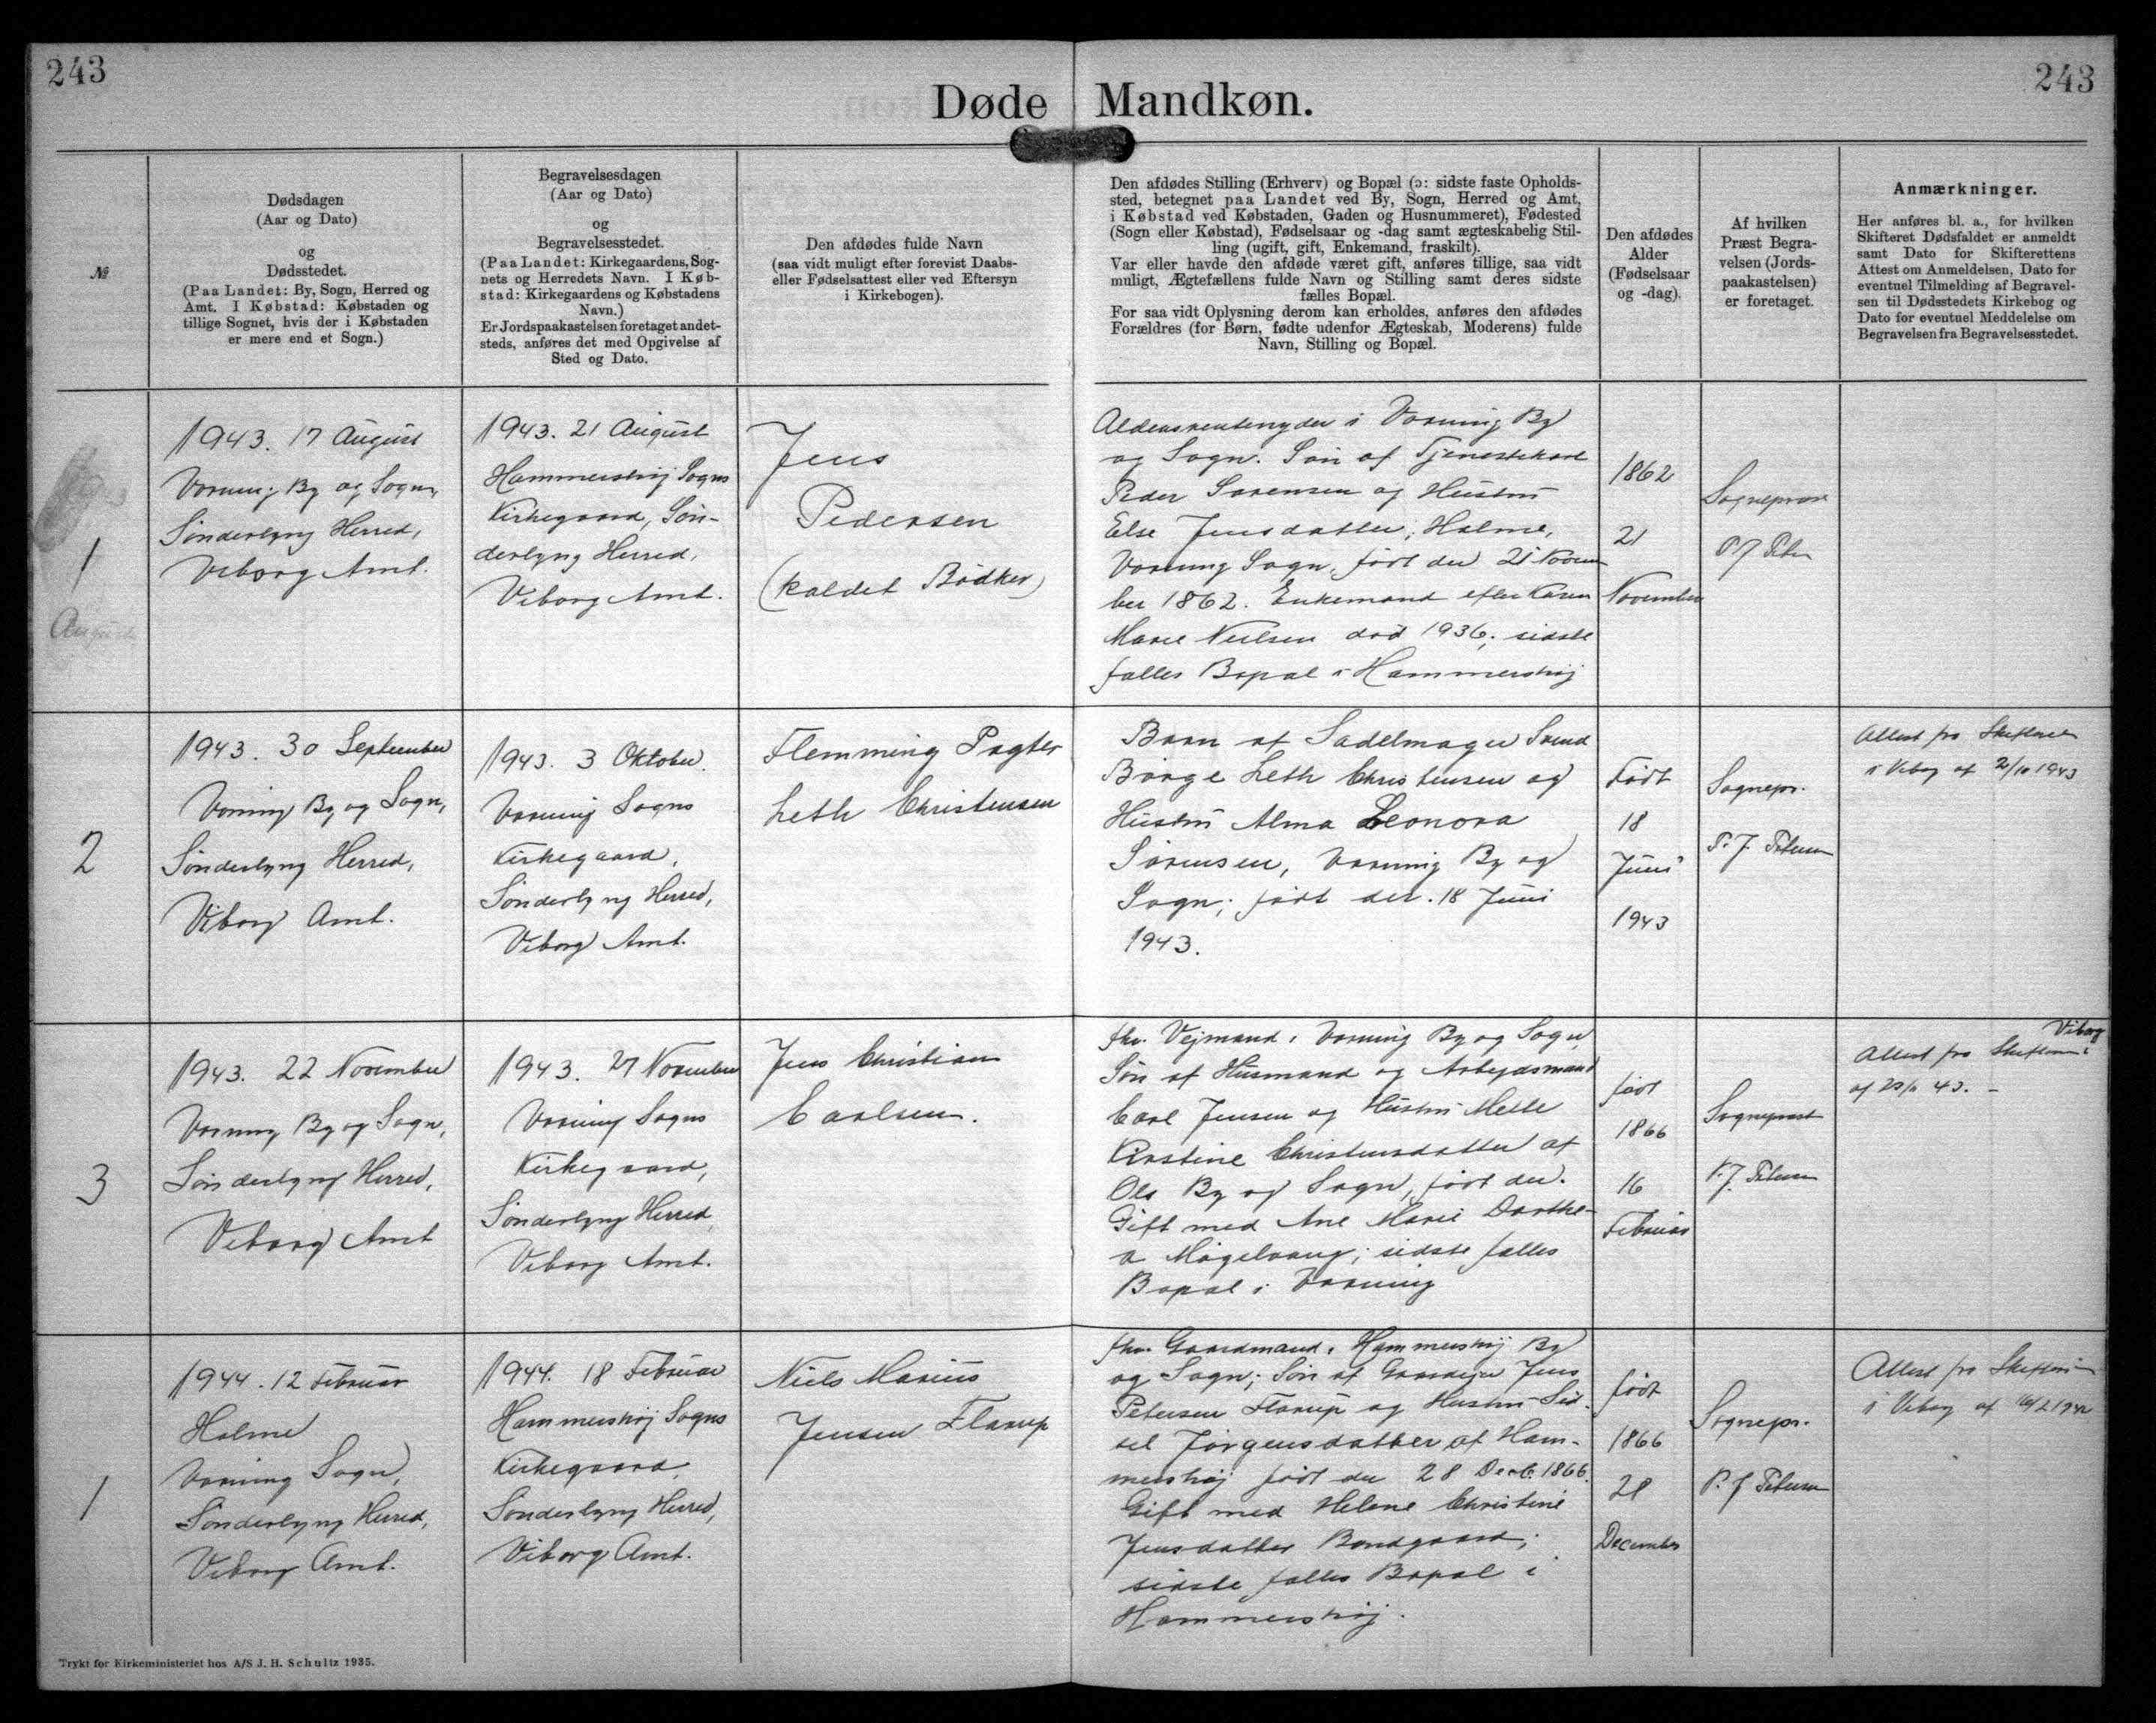 243
243
Døde Mandkøn.
№
Dødsdagen
(Aar og Dato)
og
Dødsstedet.
(Paa Landet: By, Sogn, Herred og
Amt. I Købstad: Købstaden og
tillige Sognet, hvis der i Købstaden
er mere end et Sogn.)
Begravelsesdagen
(Aar og Dato)
og
Begravelsesstedet.
(Paa Landet: Kirkegaardens, Sog-
nets og Herredets Navn. I Køb-
stad: Kirkegaardens og Købstadens
Navn.)
Er Jordspaakastelsen foretaget andet-
steds, anføres det med Opgivelse af
Sted og Dato.
Den afdødes fulde Navn
(saa vidt muligt efter forevist Daabs-
eller Fødselsattest eller ved Eftersyn
i Kirkebogen).
Den afdødes Stilling (Erhverv) og Bopæl (ɔ: sidste faste Opholds-
sted, betegnet paa Landet ved By, Sogn, Herred og Amt,
i Købstad ved Købstaden, Gaden og Husnummeret), Fødested
(Sogn eller Købstad), Fødselsaar og -dag samt ægteskabelig Stil-
ling (ugift, gift, Enkemand, fraskilt).
Var eller havde den afdøde været gift, anføres tillige, saa vidt
muligt, Ægtefællens fulde Navn og Stilling samt deres sidste
fælles Bopæl.
For saa vidt Oplysning derom kan erholdes, anføres den afdødes
Forældres (for Børn, fødte udenfor Ægteskab, Moderens) fulde
Navn, Stilling og Bopæl.
Den afdødes
Alder
(Fødselsaar
og -dag).
Af hvilken
Præst Begra-
velsen (Jords-
paakastelsen)
er foretaget.
Anmærkninger.
Her anføres bl. a., for hvilken
Skifteret Dødsfaldet er anmeldt
samt Dato for Skifterettens
Attest om Anmeldelsen, Dato for
eventuel Tilmelding af Begravel-
sen til Dødsstedets Kirkebog og
Dato for eventuel Meddelelse om
Begravelsen fra Begravelsesstedet.
1
August
1943. 17 August
Vorning By og Sogn,
Sønderlyng Herred,
Viborg Amt.
1943. 21 August
Hammershøj Sogns
Kirkegaard, Søn-
derlyng Herred,
Viborg Amt.
Jens
Pedersen
(kaldet Bødker)
Aldersrentenyder i Vorning By
og Sogn. Søn af Tjenestekarl
Peder Sørensen og Hustru
Else Jensdatter, Holme,
Vorning Sogn, født den 21 Novem
ber 1862. Enkemand efter Karen
Marie Nielsen død 1936; sidste
fælles Bopæl i Hammershøj
1862
21
November
Sognepræst
P. J.
2
1943. 30 September
Vorning By og Sogn,
Sønderlyng Herred,
Viborg Amt.
1943. 3 Oktober.
Vorning Sogns
Kirkegaard,
Sønderlyng Herred,
Viborg Amt.
Flemming Pagter
Leth Christensen
Barn af Sadelmager Svend
Børge Leth Christensen og
Hustru Alma Leonora
Sørensen, Vorning By og
Sogn; født den. 18 Juni
1943.
Født
18
Juni
1943
Sognepr.
P. J. Petersen
Attest fra Skifteret
i Viborg af 2/10 1943
3
1943. 22 November
Vorning By og Sogn,
Sønderlyng Herred,
Viborg Amt
1943. 27 November
Vorning Sogns
Kirkegaard,
Sønderlyng Herred,
Viborg Amt.
Jens Christian
Carlsen.
fhv. Vejmand i Vorning By og Sogn
Søn af Husmand og Arbejdsmand
Carl Jensen og Hustru Mette
Kirstine Christensdatter af
Ols By og Sogn, født den.
Gift med Ane Marie Dorthe-
a Møgelvang; sidste fælles
Bopæl i Vorning
født
1866
16
Februar
Sognepræst
P. J. Petersen
Viborg
Attest fra Skifteret i
af 43. –
1
1944. 12 Februar
Holme
Vorning Sogn,
Sønderlyng Herred,
Viborg Amt.
1944. 18 Februar
Hammershøj Sogns
Kirkegaard,
Sønderlyng Herred,
Viborg Amt.
Niels Marius
Jensen Flarup
fhv. Gaardmand i Hammershøj By
og Sogn; Søn af Gaardejer Jens
Petersen Flarup og Hustru Sid-
sel Jørgensdatter af Ham-
mershøj født den 28 Decb. 1866.
Gift med Helene Christine
Jensdatter Bondgaard;
sidste fælles Bopæl i
Hammershøj.
født
1866
28
December
Sognepr.
P. J. Petersen
Attest fra Skifteret
i Viborg af
Trykt for Kirkeministeriet hos A/S J. H. Schultz 1935.